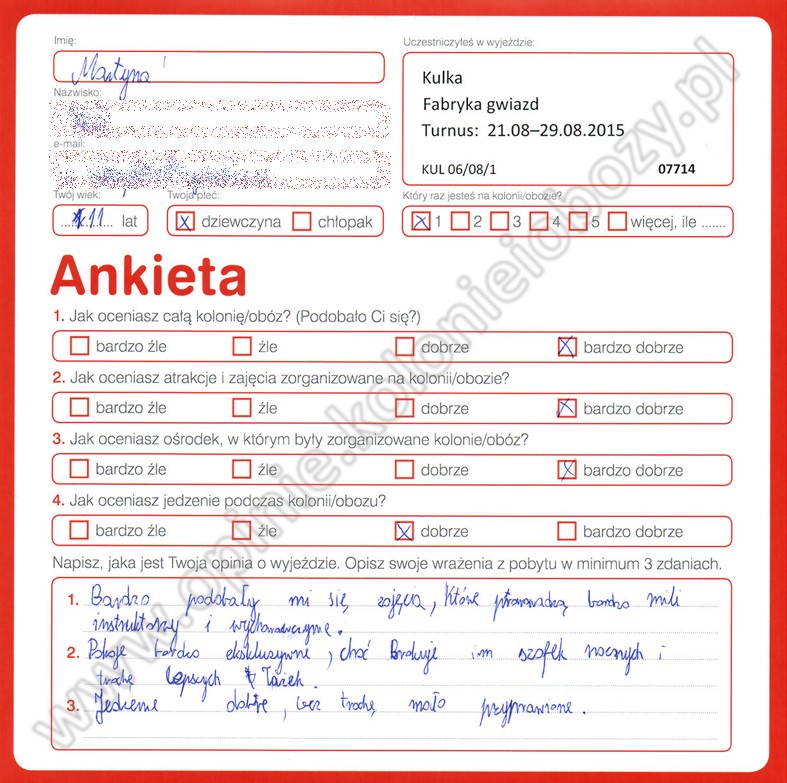 Imię:
Martyna
Nazwisko:
e-mail:
Twój wiek:
11 lat
Twoja płeć:
dziewczyna chłopak
Uczestniczyłeś w wyjeździe:
Kulka
Fabryka gwiazd
Turnus: 21.08–29.08.2015
KUL 06/08/1 07714
Który raz jesteś na kolonii/obozie?
1 2 3 4 5 więcej, ile .......
Ankieta
1. Jak oceniasz całą kolonię/obóz? (Podobało Ci się?)
bardzo źle źle dobrze bardzo dobrze
2. Jak oceniasz atrakcje i zajęcia zorganizowane na kolonii/obozie?
bardzo źle źle dobrze bardzo dobrze
3. Jak oceniasz ośrodek, w którym były zorganizowane kolonie/obóz?
bardzo źle źle dobrze bardzo dobrze
4. Jak oceniasz jedzenie podczas kolonii/obozu?
bardzo źle źle dobrze bardzo dobrze
Napisz, jaka jest Twoja opinia o wyjeździe. Opisz swoje wrażenia z pobytu w minimum 3 zdaniach.
1. Bardzo podobały mi się zajęcia, które prowadzą bardzo mili
instruktorzy i
2. Pokoje bardzo ekskluzywne, choć brakuje im szafek nocnych i
trochę lepszych
3. Jedzenie dobre, lecz trochę mało przyprawione.
www.opinie.kolonieiobozy.pl